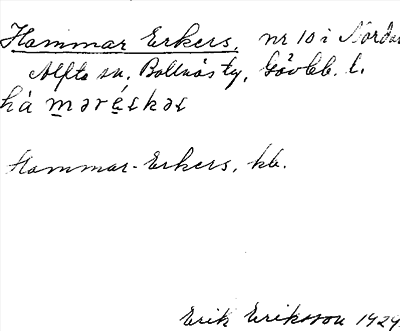 Hammar Erkers, nr 10 i Norda
Alfta sn, Bollnäs tg, Gävleb. l.
hàməréskəs
Hammar-Erkers, kb.
Erik Eriksson 1929